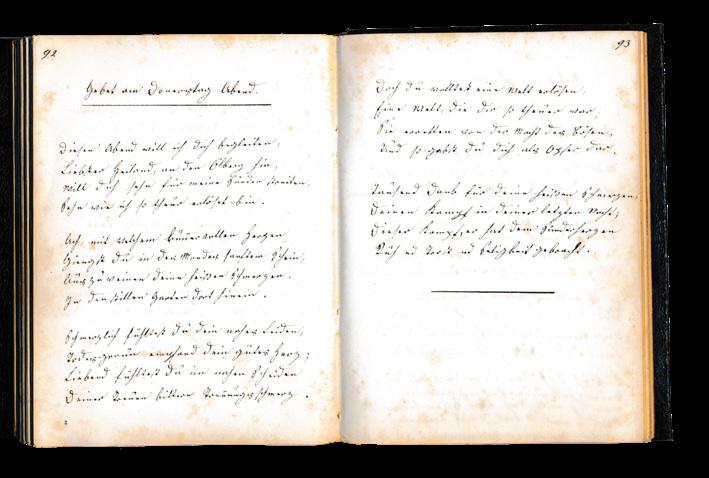 92
Gebet am Donerstag Abend.
Diesen Abend will ich dich begleiten,
Liebster Heiland, an den Ölberg hin,
Will dich sehn für meine Sünden streiten,
Sehn wie ich so theur erlöset bin.
Ach, mit welchem kumervollen Herzen
Giengst du in des Mondes sanftem Schein,
Auszuweinen deine heißen Schmerzen,
In den stillen Garten dort hinein.
Schmerzlich fühltest du dein nahes Leiden,
Todesgrauen empfand dein gutes Herz;
Liebend fühltest du im nahen Scheiden
Deiner Treuen bittern Trennungsschmerz.
93
Doch du wolltest eine Welt erlösen,
Eine Welt, die dir so theuer war;
Sie erretten von der Macht des Bösen,
Und so gabst du dich als Opfer dar.
Tausend Dank für deine heißen Schmerzen,
Deinen Kampf in deiner letzten Nacht;
Dieser Kampf, er hat dem Sünderherzen
Ruh ud Trost ud Seligkeit gebracht.